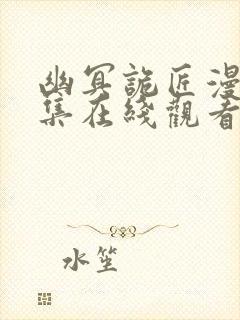 幽冥詭匠漫
集在綫觀看
水笙